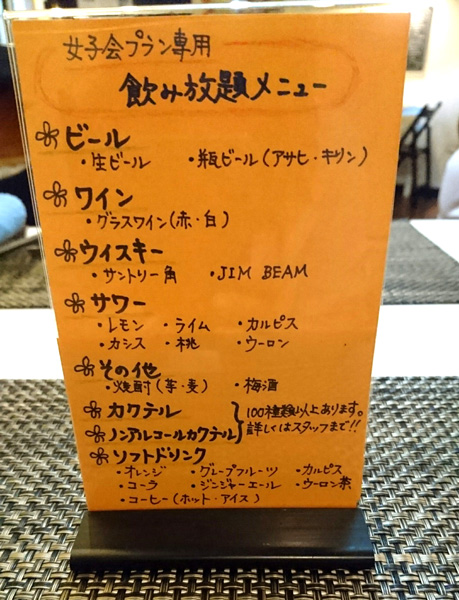 女子会プラン専用
飲み放題メニュー
ビール
・生ビール ・瓶ビール(アサヒ・キリン)
ワイン
・グラスワイン(赤・白)
ウィスキー
・サントリー角 ・JIM BEAM
サワー
・レモン ・ライム ・カルピス
・カシス ・桃 ・ウーロン
その他
・焼酎(芋・麦) ・梅酒
カクテル
ノンアルコールカクテル
100種類以上あります。
詳しくはスタッフまで!!
ソフトドリンク
・オレンジ ・グレープフルーツ ・カルピス
・コーラ ・ジンジャーエール ・ウーロン茶
・コーヒー(ホット・アイス)